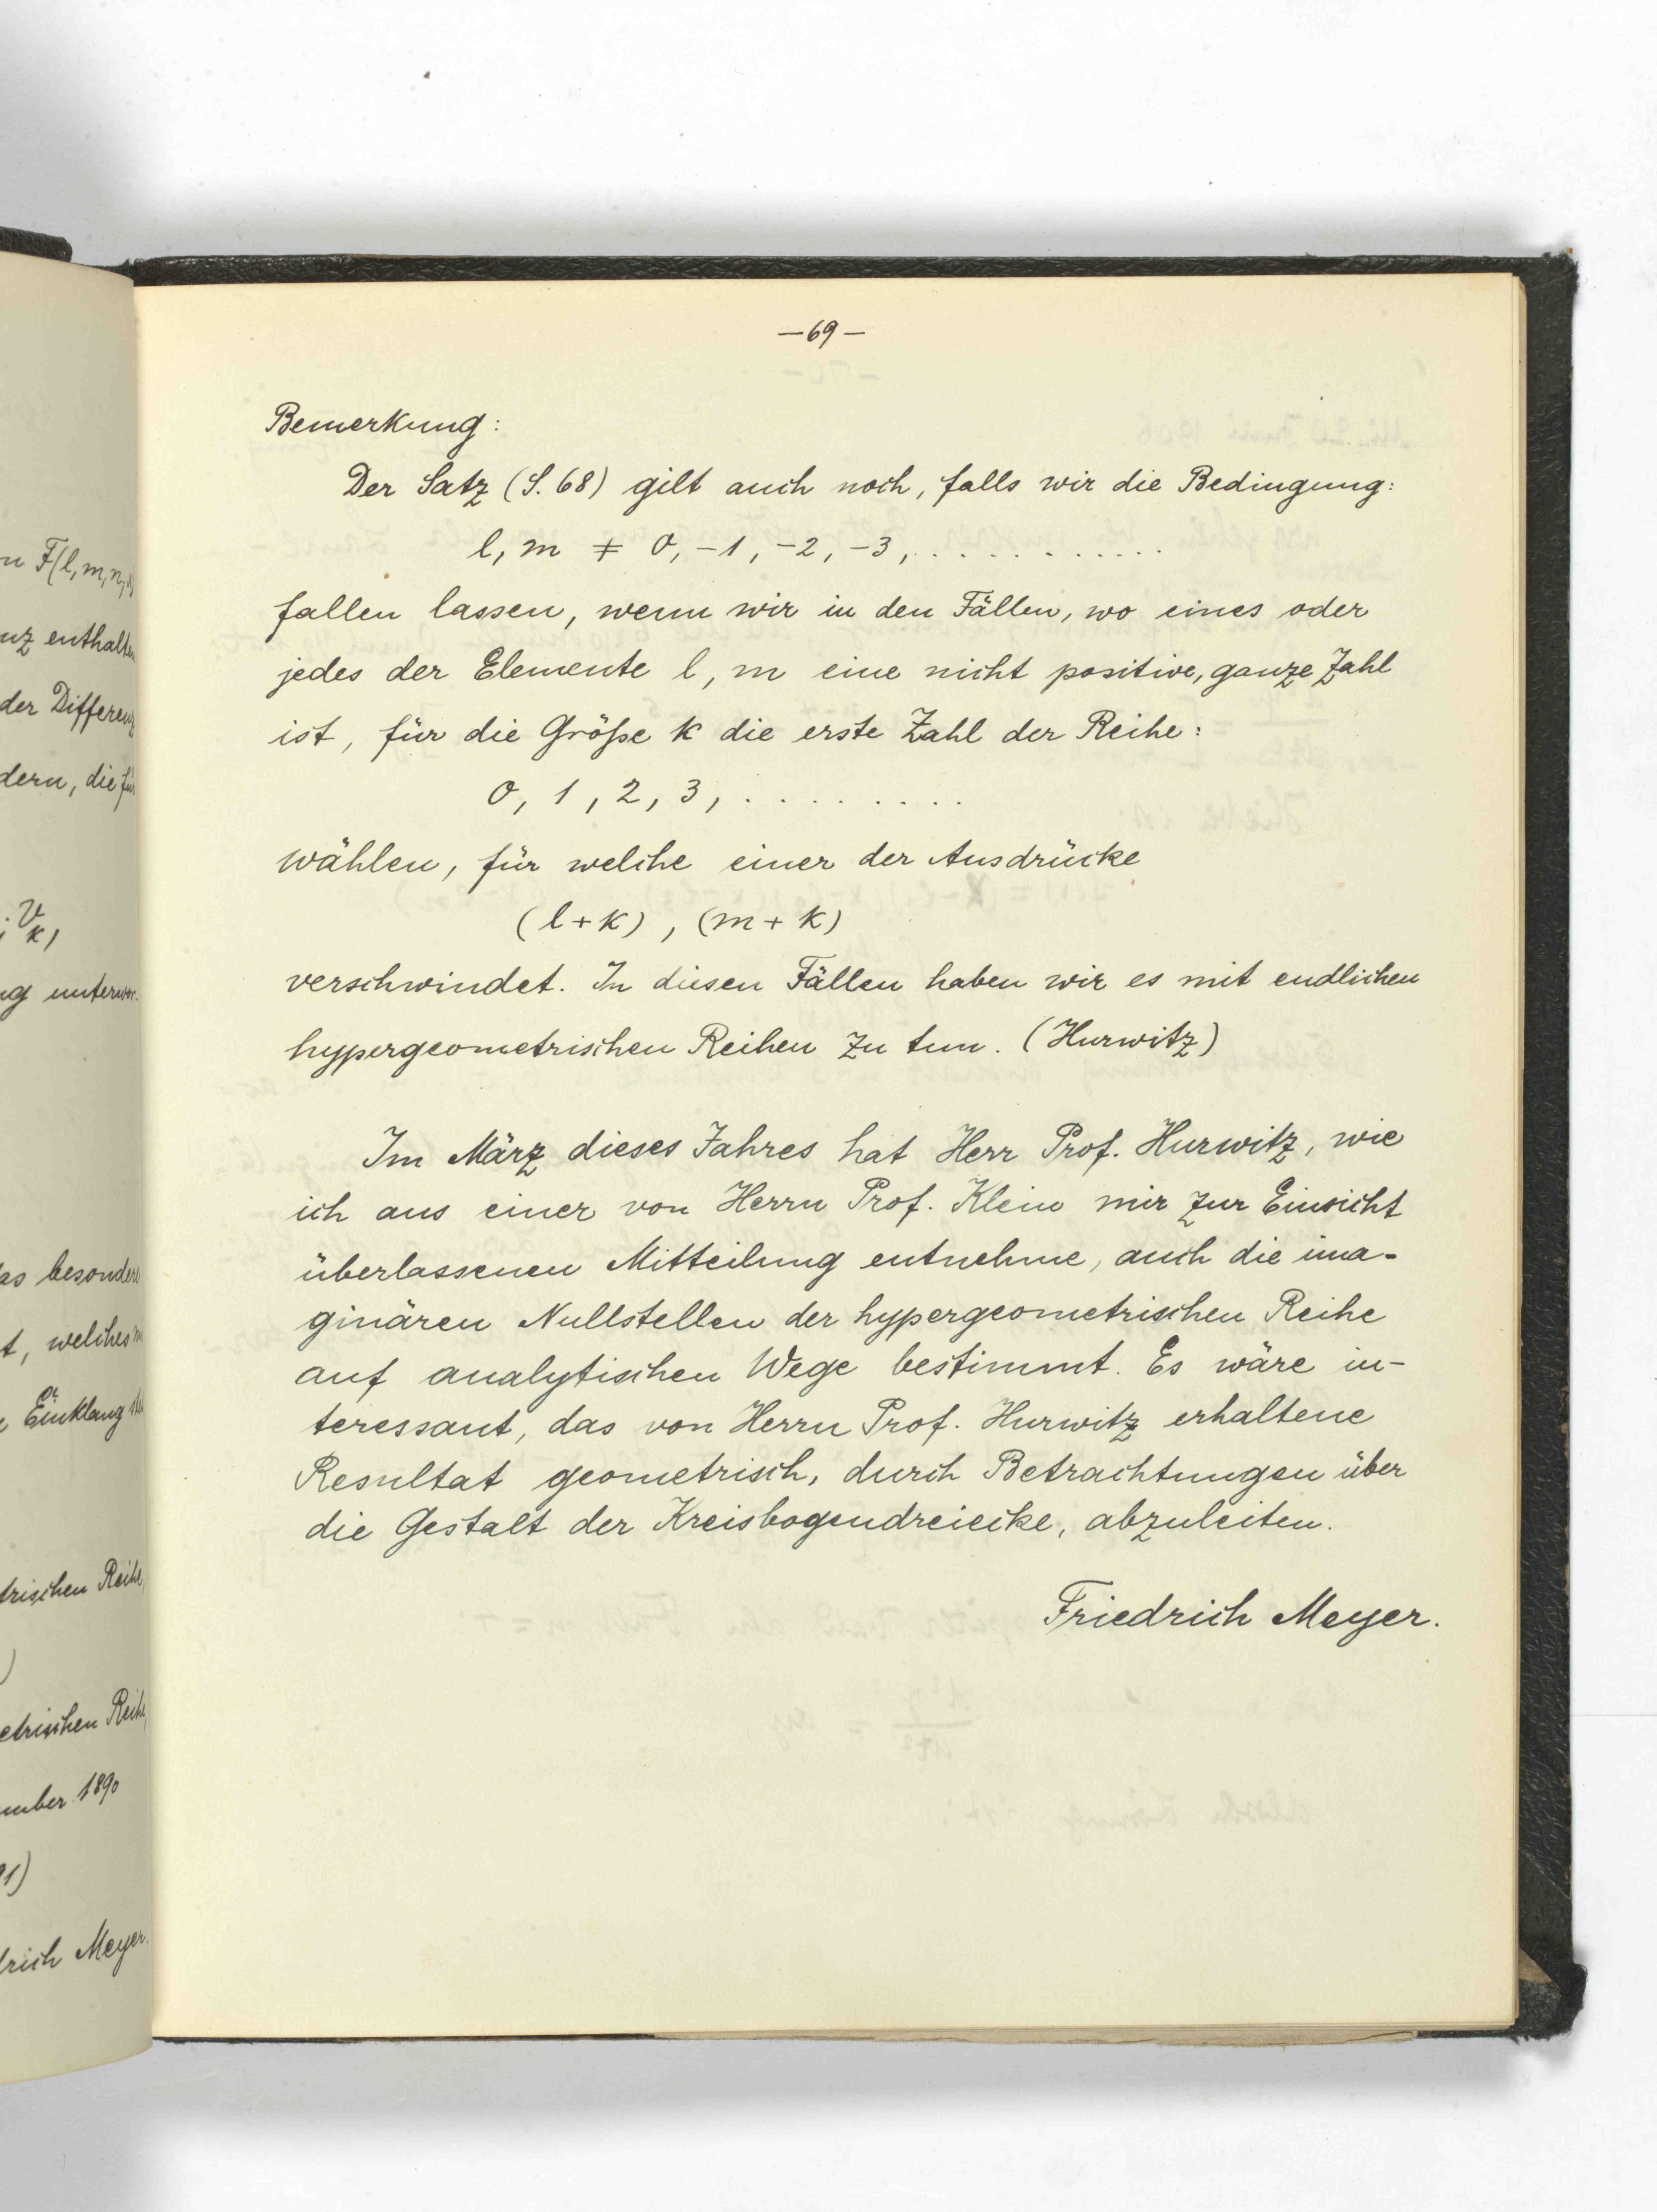 n F(l, m, n,
nz enthalten
der Differenz
dern, die für
V k,
g unterwor-
as besondere
t, welches
Einklang
trischen Reihe,
)
etrischen Reihe,
ember 1890
91)
drich Meyer.
— 69 —
Bemerkung:
Der Satz (S. 68) gilt auch noch, falls wir die Bedingung:
l, m ≠ 0, -1, -2, -3, . . . . . . . . . . . .
fallen lassen, wenn wir in den Fällen, wo eines oder
jedes der Elemente l, m eine nicht positive, ganze Zahl
ist, für die Größe k die erste Zahl der Reihe:
0, 1, 2, 3, . . . . . . . . .
wählen, für welche einer der Ausdrücke
(l + k), (m + k)
verschwindet. In diesen Fällen haben wir es mit endlichen
hypergeometrischen Reihen zu tun. (Hurwitz)
Im März dieses Jahres hat Herr Prof. Hurwitz, wie
ich aus einer von Herrn Prof. Klein mir zur Einsicht
überlassenen Mitteilung entnehme, auch die ima-
ginären Nullstellen der hypergeometrischen Reihe
auf analytischen Wege bestimmt. Es wäre in-
teressant, das von Herrn Prof. Hurwitz erhaltene
Resultat geometrisch, durch Betrachtungen über
die Gestalt der Kreisbogendreiecke, abzuleiten.
Friedrich Meyer.